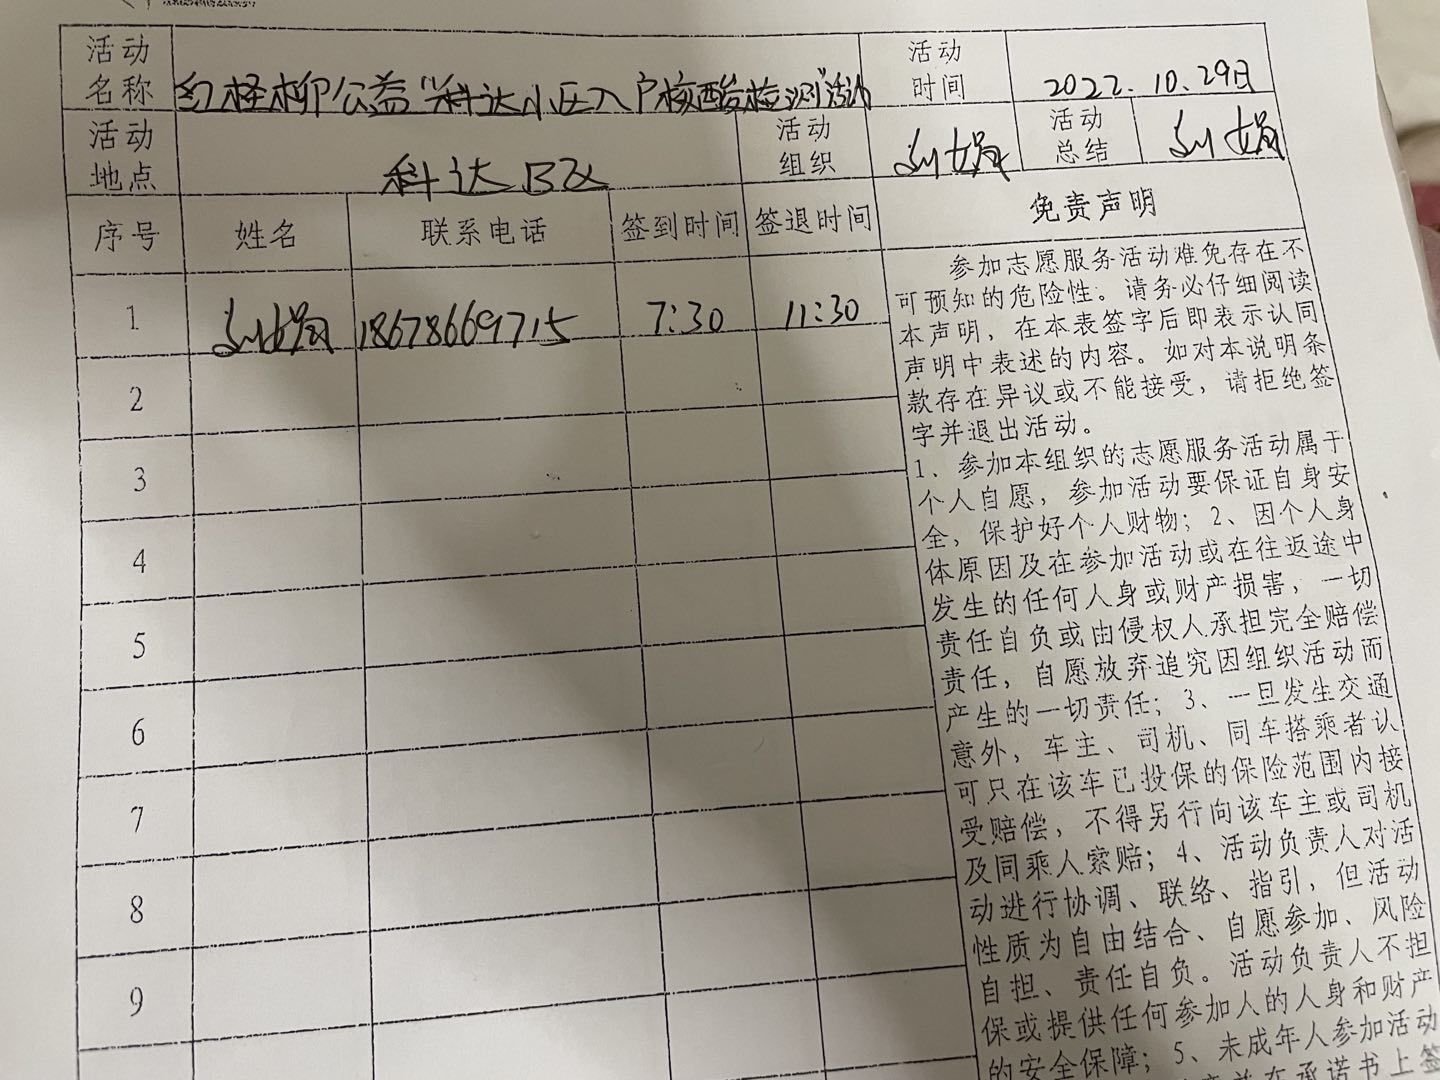 活动名称 红柽柳公益"科达小区入户核酸检测"活动 活动时间 2022.10.29日
活动地点 科达B区 活动组织 刘娟 活动总结 刘娟
序号 姓名 联系电话 签到时间 签退时间 免责声明
1 刘娟 18678669715 7:30 11:30
2
3
4
5
6
7
8
9
参加志愿服务活动难免存在不
可预知的危险性。请务必仔细阅读
本声明，在本表签字后即表示认同
声明中表述的内容。如对本说明条
款存在异议或不能接受，请拒绝签
字并退出活动。
1、参加本组织的志愿服务活动属于
个人自愿，参加活动要保证自身安
全，保护好个人财物；2、因个人身
体原因及在参加活动或在往返途中
发生的任何人身或财产损害，一切
责任自负或由侵权人承担完全赔偿
责任，自愿放弃追究因组织活动而
产生的一切责任；3、一旦发生交通
意外，车主、司机、同车搭乘者认
可只在该车已投保的保险范围内接
受赔偿，不得另行向该车主或司机
及同乘人索赔；4、活动负责人对活
动进行协调、联络、指引，但活动
性质为自由结合、自愿参加、风险
自担、责任自负。活动负责人不担
保或提供任何参加人的人身和财产
的安全保障；5、未成年人参加活动
在承诺书上签